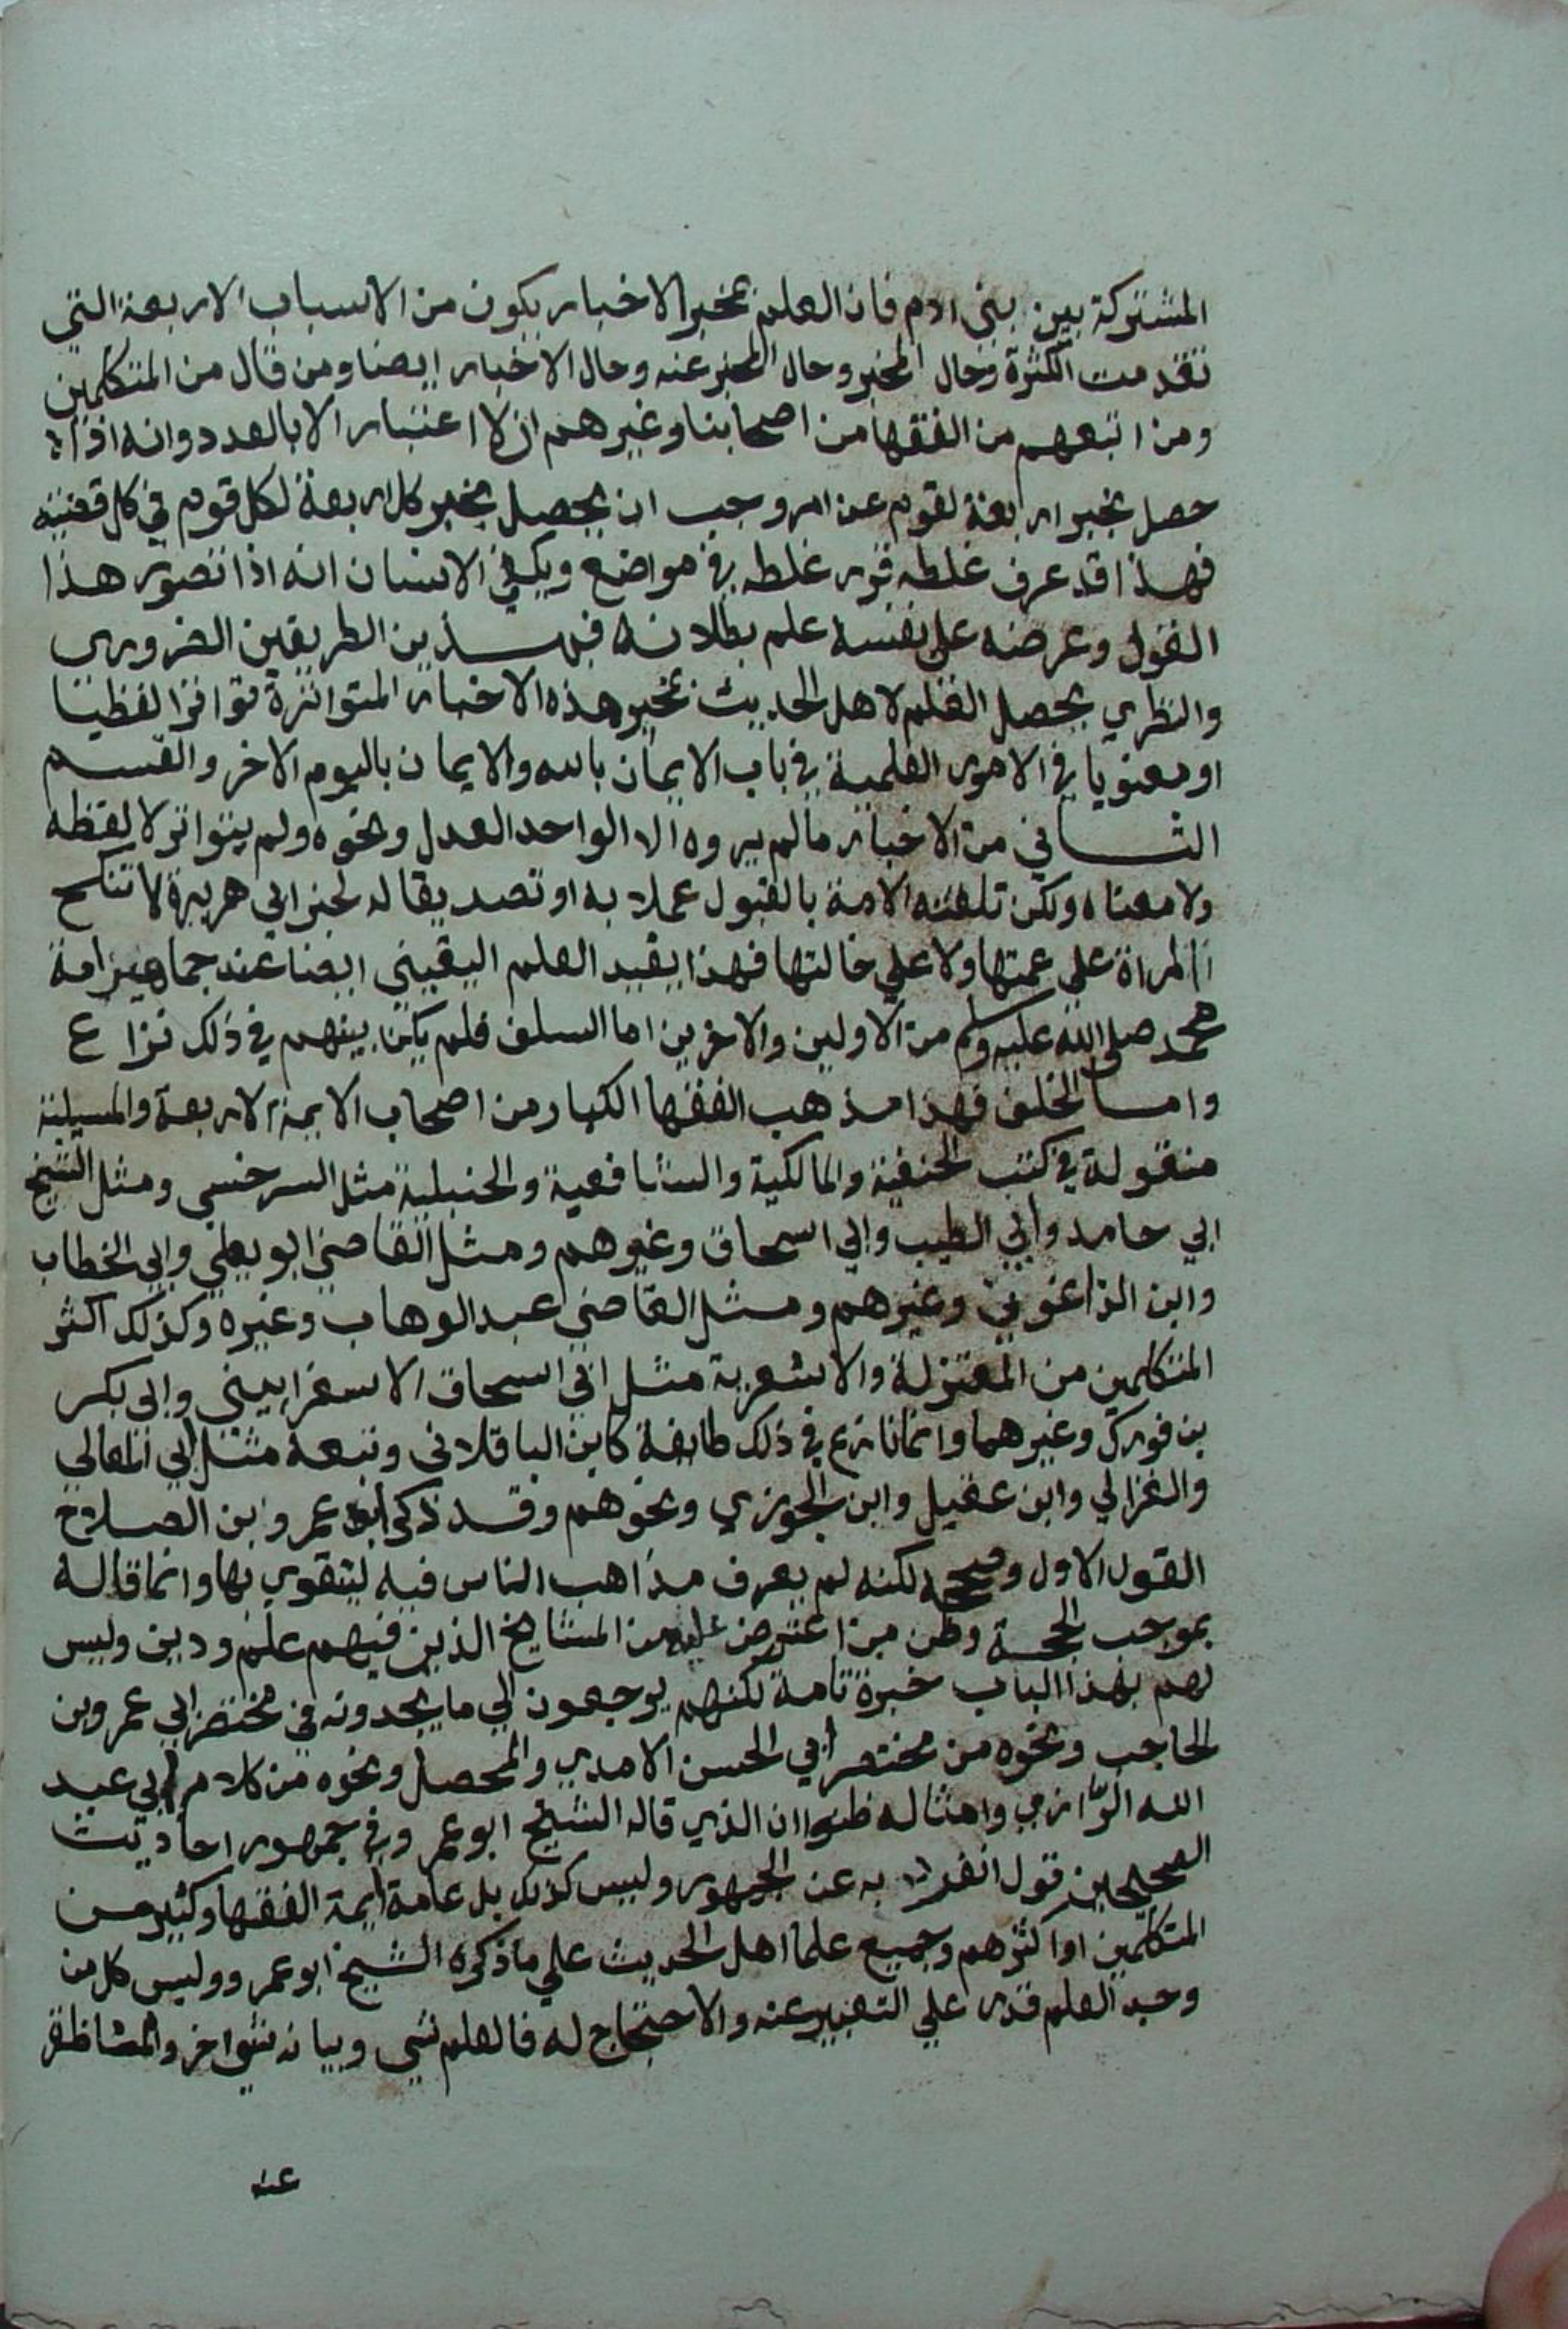 المشتركة بين بني ادم فان العلم بمخبر الاخبار يكون من الاسباب الاربعة التي
تقدمت الكثرة وحال المخبر وحال المخبر عنه وحال الاخبار ايضا ومن قال من المتكلمين
ومن اتبعهم من الفقها من اصحابنا وغيرهم ان لا اعتبار الا بالعدد وانه اذا
حصل بخبر اربعة لقوم عن امر وجب ان يحصل بخبر كل اربعة لكل قوم في كل قضية
فهذا قد عرف غلطه قرر غلطه في مواضع ويكفي الانسان انه اذا تصور هذا
القول وعرضه على نفسه علم بطلانه فبهذين الطريقين الضروري
والنظري يحصل العلم لاهل الحديث بمخبر هذه الاخبار المتواترة تواترا لفظيا
او معنويا في الامور العلمية في باب الايمان بالله والايمان باليوم الاخر والقسم
الثاني من الاخبار ما لم يروه الا الواحد العدل ونحوه ولم يتواتر لا لفظه
ولا معناه ولكن تلقته الامة بالقبول عملا به او تصديقا له لخبر ابي هريرة لا تنكح
المراة علي عمتها ولا علي خالتها فهذا يفيد العلم اليقيني ايضا عند جماهير امة
محمد صلى الله عليه وسلم من الاولين والاخرين اما السلف فلم يكن بينهم في ذلك نزاع
واما الخلف فهذا مذهب الفقها الكبار من اصحاب الايمة الاربعة والمسيلة
منقولة في كتب الحنفية والمالكية والشافعية والحنبلية مثل السرخسي ومثل الشيخ
ابي حامد وابي الطيب وابي اسحاق وغيرهم ومثل القاضي ابو يعلي وابي الخطاب
وابن الزاغوني وغيرهم ومثل القاضي عبد الوهاب وغيره وكذلك اكثر
المتكلمين من المعتزلة والاشعرية مثل ابي اسحاق الاسفرابيني وابي بكر
بن فورك وغيرهما وانما نازع في ذلك طايفة كابن الباقلاني وتبعه مثل ابي المعالي
والغزالي وابن عقيل وابن الجوزي ونحوهم وقد ذكر ابو عمرو بن الصلاح
القول الاول وصححه لكنه لم يعرف مذاهب الناس فيه ليتقوي بها وانما قاله
بموجب الحجة وظن من اعترض عليه من المشايخ الذين فيهم علم ودين وليس
لهم بهذا الباب خبرة تامة لكنهم يرجعون الي ما يجدونه في مختصر ابي عمرو بن
الحاجب ونحوه من مختصر ابي الحسن الامدي والمحصل ونحوه من كلام ابي عبد
الله الرازي وامثاله ظنوا ان الذي قاله الشيخ ابو عمرو في جمهور احاديث
الصحيحين قول انفرد به عن الجمهور وليس كذلك بل عامة ايمة الفقها وكثير من
المتكلمين او اكثرهم وجميع علما اهل الحديث علي ما ذكره الشيخ ابو عمرو وليس كل من
وجد العلم قدر علي التعبير عنه والاحتجاج له فالعلم شي وبيانه شي اخر والمناظرة
عنه